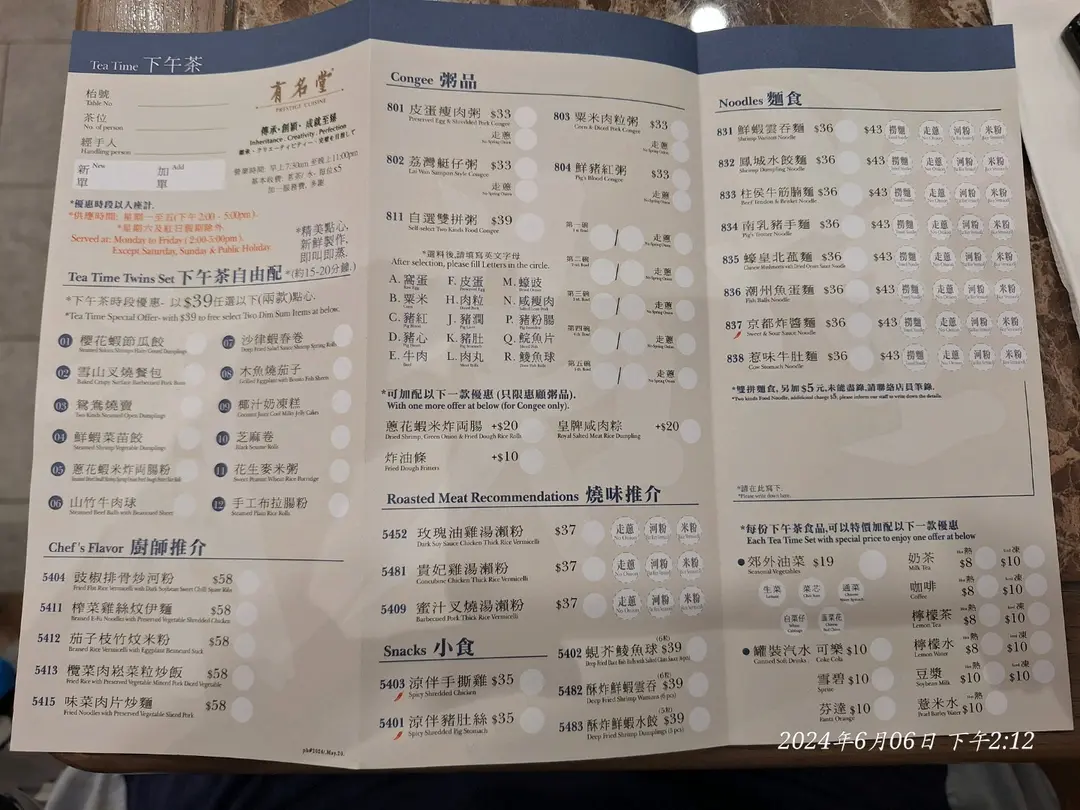 Tea Time 下午茶
枱號
Table No
茶位
No. of person
經手人
Handling person
新單 New
加單 Add
有名堂
PRESTIGE CUISINE
傳承·創新·成就至臻
Inheritance · Creativity · Perfection
營業時間: 早上7:30am 至晚上11:00pm
基本收費: 茗茶/水, 每位$5
加一服務費, 多謝
*優惠時段以入座計.
*供應時間: 星期一至五(下午2:00 - 5:00pm).
*星期六及紅日假期除外
Served at: Monday to Friday ( 2:00-5:00pm ).
Except Saturday, Sunday & Public Holiday
*精美點心,
新鮮製作,
即叫即蒸.
*(約15-20分鐘.)
Tea Time Twins Set 下午茶自由配
*下午茶時段優惠- 以 $39 任選以下(兩款)點心.
*Tea Time Special Offer- with $39 to free select Two Dim Sum Items at below.
01 櫻花蝦節瓜餃
02 雪山叉燒餐包
Baked Crispy Surface Barbecued Pork Buns
03 鴛鴦燒賣
Two Kinds Steamed Open Dumplings
04 鮮蝦菜苗餃
Steamed Shrimp Vegetable Dumplings
05 蔥花蝦米炸両腸粉
06 山竹牛肉球
Steamed Beef Balls with Beancurd Sheet
07 沙律蝦春卷
Deep Fried Salad Sauce Shrimp Spring Rolls
08 木魚燒茄子
Grilled Eggplant with Bonito Fish Sheets
09 椰汁奶凍糕
Coconut Juice Cool Milky Jelly Cakes
10 芝麻卷
Black Sesame Rolls
11 花生麥米粥
Sweet Peanut Wheat Rice Porridge
12 手工布拉腸粉
Steamed Plain Rice Rolls
Chef's Flavor 廚師推介
5404 豉椒排骨炒河粉 $58
Fried Flat Rice Vermicelli with Dark Soybean Sweet Chilli Spare Ribs
5411 榨菜雞絲炆伊麵 $58
Braised E-Fu Noodles with Preserved Vegetable Shredded Chicken
5412 茄子枝竹炆米粉 $58
Braised Rice Vermicelli with Eggplant Beancurd Stick
5413 欖菜肉崧菜粒炒飯 $58
Fried Rice with Preserved Vegetable Minced Pork Diced Vegetable
5415 味菜肉片炒麵 $58
Fried Noodles with Preserved Vegetable Sliced Pork
Congee 粥品
801 皮蛋瘦肉粥 $33
Preserved Egg & Shredded Pork Congee
走蔥
No Spring Onion
802 荔灣艇仔粥 $33
Lai Wan Sampan Style Congee
走蔥
No Spring Onion
803 粟米肉粒粥 $33
Corn & Diced Pork Congee
走蔥
No Spring Onion
804 鮮豬紅粥 $33
Pig's Blood Congee
走蔥
No Spring Onion
811 自選雙拼粥 $39
Self-select Two Kinds Food Congee
*選料後,請填寫英文字母
After selection, please fill Letters in the circle.
A. 窩蛋 F. 皮蛋 M. 蠔豉
B. 粟米 H. 肉粒 N. 咸瘦肉
C. 豬紅 J. 豬潤 P. 豬粉腸
D. 豬心 K. 豬肚 Q. 鯇魚片
E. 牛肉 L. 肉丸 R. 鯪魚球
第一碗 / 走蔥
第二碗 / 走蔥
第三碗 / 走蔥
第四碗 / 走蔥
第五碗 / 走蔥
*可加配以下一款優惠 (只限惠顧粥品).
With one more offer at below (for Congee only).
蔥花蝦米炸両腸 +$20
Dried Shrimp, Green Onion & Fried Dough Rice Rolls
皇牌咸肉粽 +$20
Royal Salted Meat Rice Dumpling
炸油條 +$10
Fried Dough Fritters
Roasted Meat Recommendations 燒味推介
5452 玫瑰油雞湯瀨粉 $37 走蔥 河粉 米粉
Dark Soy Sauce Chicken Thick Rice Vermicelli
5481 貴妃雞湯瀨粉 $37 走蔥 河粉 米粉
Concubine Chicken Thick Rice Vermicelli
5409 蜜汁叉燒湯瀨粉 $37 走蔥 河粉 米粉
Barbecued Pork Thick Rice Vermicelli
Snacks 小食
5403 涼伴手撕雞 $35
Spicy Shredded Chicken
5401 涼伴豬肚絲 $35
Spicy Shredded Pig Stomach
5402 蜆芥鯪魚球 $39
5482 酥炸鮮蝦雲吞 $39
Deep Fried Shrimp Wontons (6 pcs)
5483 酥炸鮮蝦水餃 $39
Deep Fried Shrimp Dumplings (5 pcs)
Noodles 麵食
831 鮮蝦雲吞麵 $36 $43 撈麵 走蔥 河粉 米粉
Shrimp Wonton Noodle
832 鳳城水餃麵 $36 $43 撈麵 走蔥 河粉 米粉
Shrimp Dumpling Noodle
833 柱侯牛筋腩麵 $36 $43 撈麵 走蔥 河粉 米粉
Beef Tendon & Brisket Noodle
834 南乳豬手麵 $36 $43 撈麵 走蔥 河粉 米粉
Pig's Trotter Noodle
835 蠔皇北菰麵 $36 $43 撈麵 走蔥 河粉 米粉
836 潮州魚蛋麵 $36 $43 撈麵 走蔥 河粉 米粉
Fish Balls Noodle
837 京都炸醬麵 $36 $43 撈麵 走蔥 河粉 米粉
Sweet & Sour Sauce Noodle
838 惹味牛肚麵 $36 $43 撈麵 走蔥 河粉 米粉
Cow Stomach Noodle
*雙拼麵食, 另加 $5 元, 未能盡錄, 請聯絡店員筆錄.
*Two kinds Food Noodle, additional charge $5, please inform our staff to write down the details.
*請在此寫下.
*Please write down here.
*每份下午茶食品, 可以特價加配以下一款優惠
Each Tea Time Set with special price to enjoy one offer at below
郊外油菜 $19
Seasonal Vegetables
生菜 菜芯 通菜
白菜仔 韮菜花
罐裝汽水 可樂 $10
Canned Soft Drinks Coke Cola
雪碧 $10
Sprite
芬達 $10
Fanta Orange
奶茶 熱 $8 凍 $10
Milk Tea
咖啡 熱 $8 凍 $10
Coffee
檸檬茶 熱 $8 凍 $10
Lemon Tea
檸檬水 熱 $8 凍 $10
Lemon Water
豆漿 熱 $10 凍 $10
Soybean Milk
薏米水 熱 $10
Pearl Barley Water
2024年6月06日 下午2:12